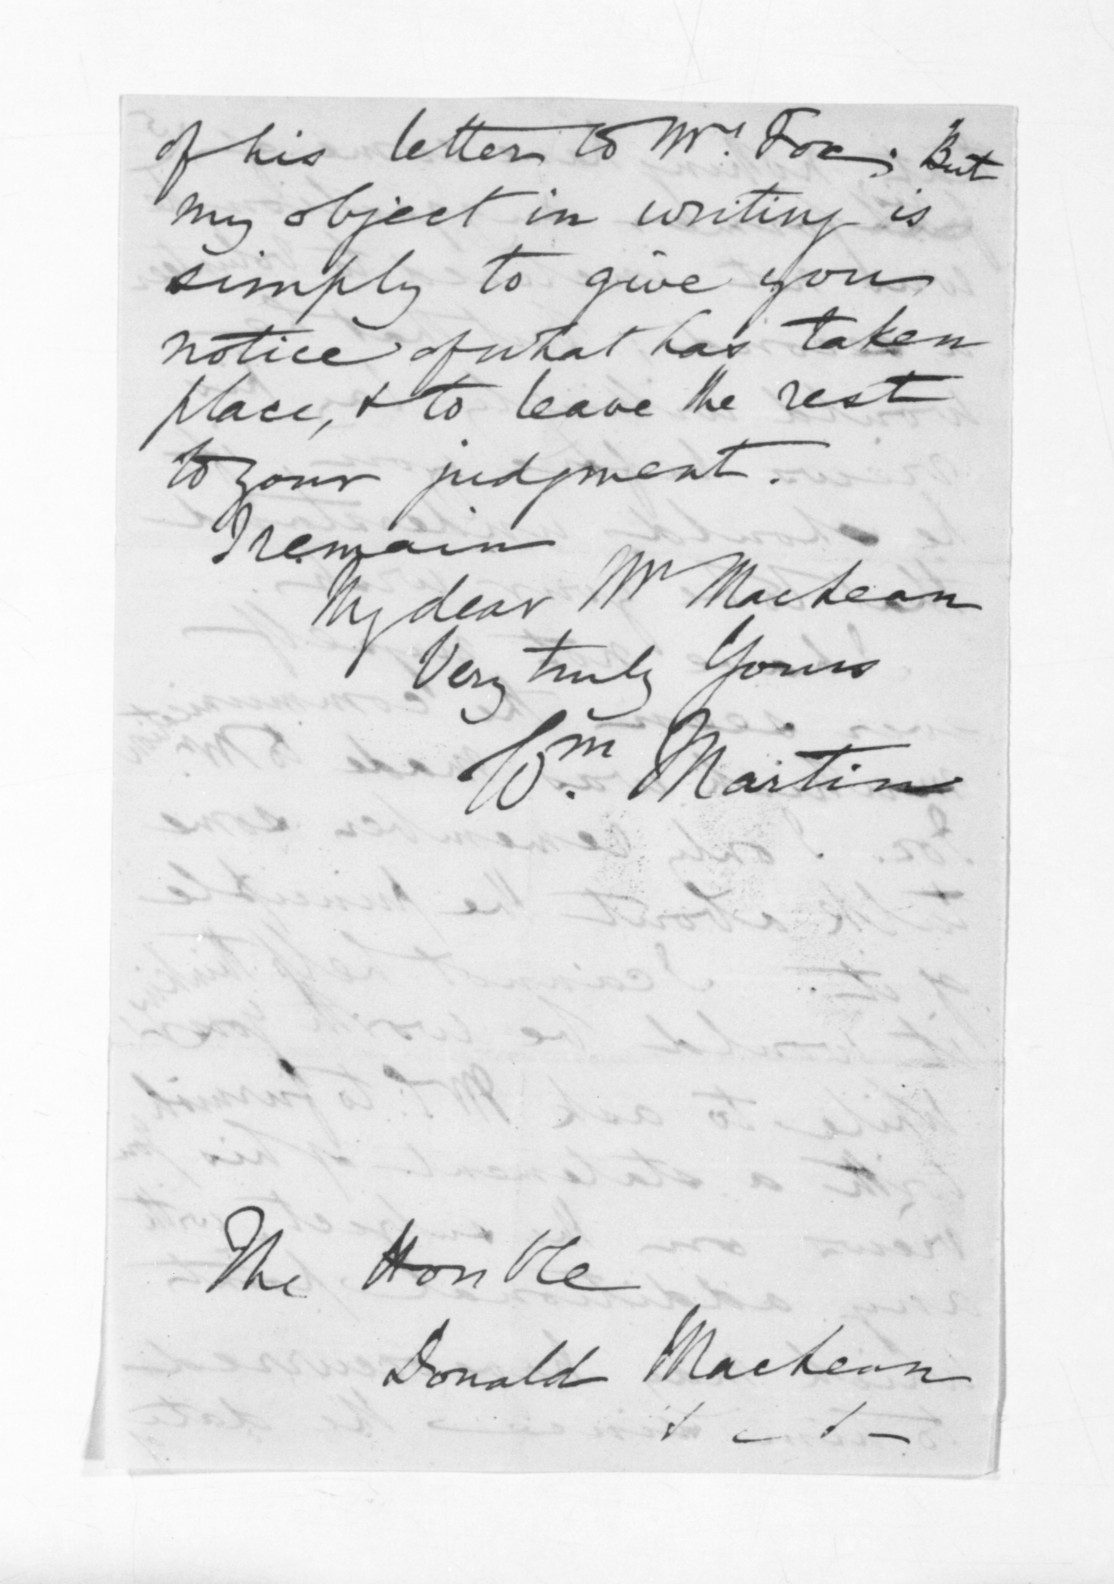 of his letter to Mr. Fox; But
my object in writing is
simply to give you
notice of what has taken
place, & to leave the rest
to your judgment.
I remain
My dear Mr MacLean
Very truly Yours
Wm. Martin
The Honble
Donald MacLean
& c &